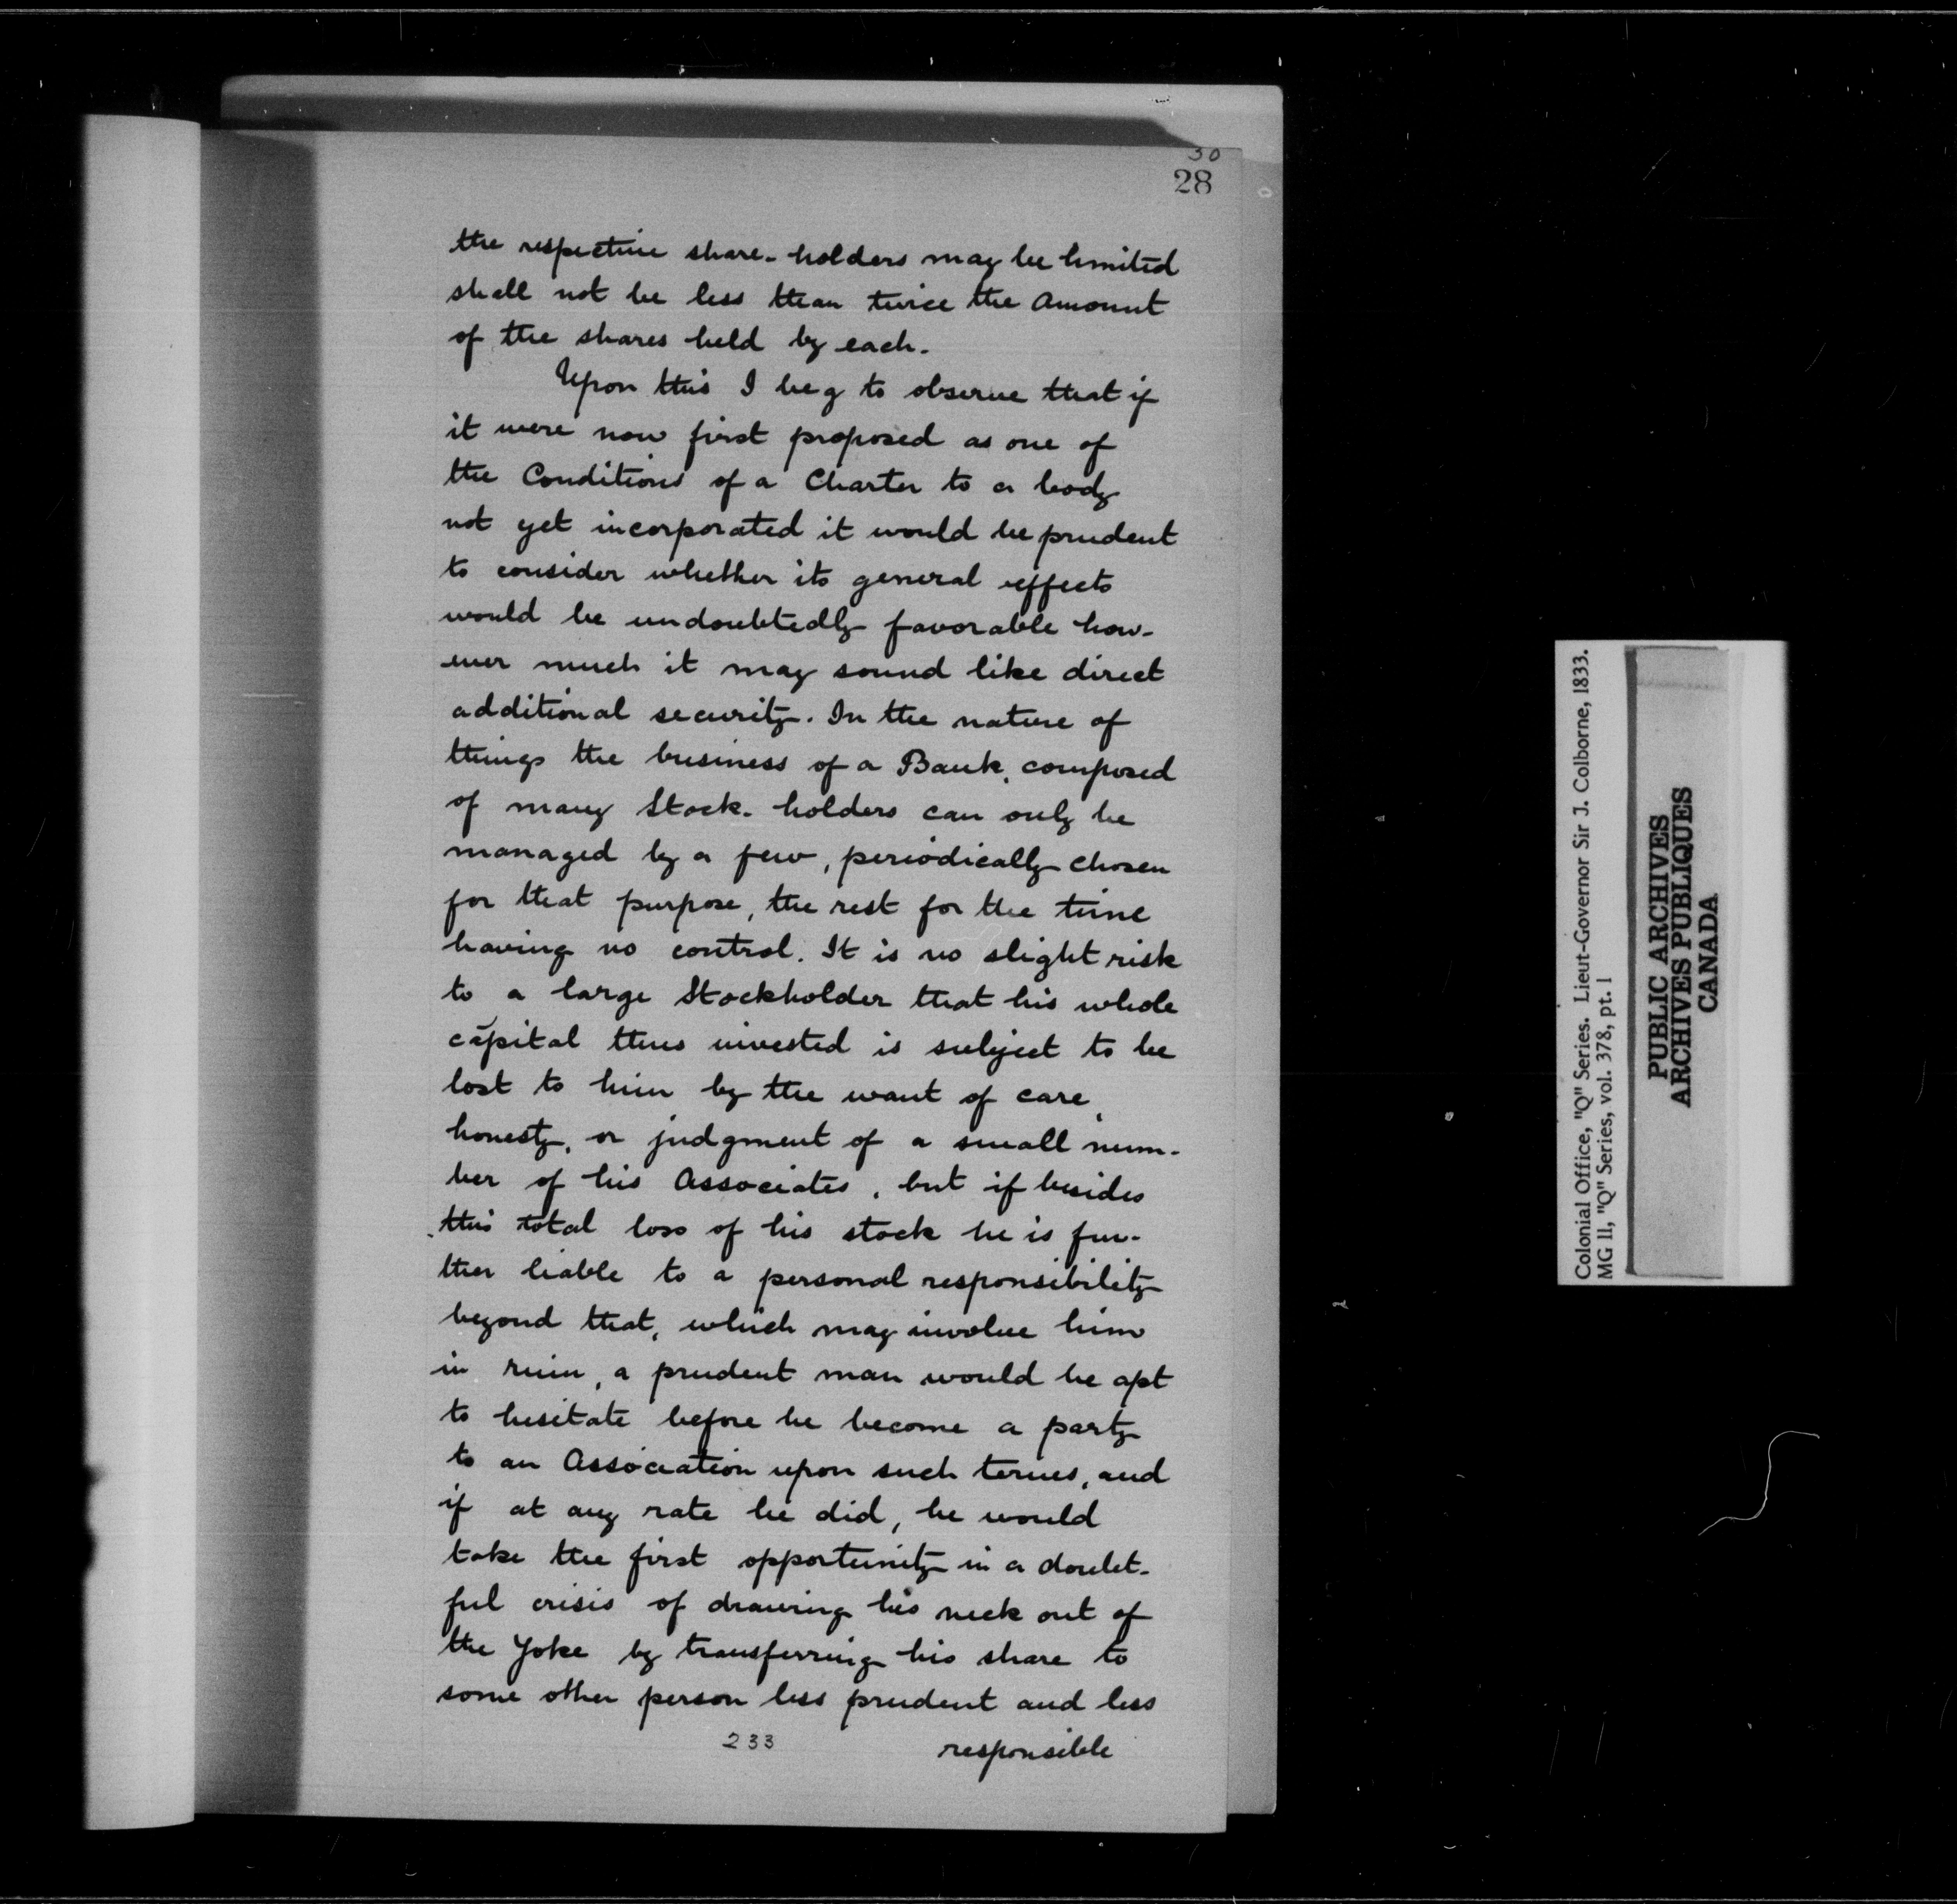 30
28
the respective share-holders may be limited
shall not be less than twice the Amount
of the shares held by each.
Upon this I beg to observe that if
it were now first proposed as one of
the Conditions of a Charter to a body
not yet incorporated it would be prudent
to consider whether its general effects
would be undoubtedly favorable how-
ever much it may sound like direct
additional security. In the nature of
things the business of a Bank, composed
of many Stock-holders can only be
managed by a few, periodically chosen
for that purpose, the rest for the time
having no control. It is no slight risk
to a large Stockholder that his whole
capital thus invested is subject to be
lost to him by the want of care,
honesty, or judgment of a small num-
ber of his Associates, but if besides
this total loss of his stock he is fur-
ther liable to a personal responsibility
beyond that, which may involve him
in ruin, a prudent man would be apt
to hesitate before he become a party
to an Association upon such terms, and
if at any rate he did, he would
take the first opportunity in a doubt-
ful crisis of drawing his neck out of
the Yoke by transferring his share to
some other person less prudent and less
233
responsible
Colonial Office, "Q" Series. Lieut-Governor Sir J. Colborne, 1833.
MG 11, "Q" Series, vol. 378, pt. 1
PUBLIC ARCHIVES
ARCHIVES PUBLIQUES
CANADA